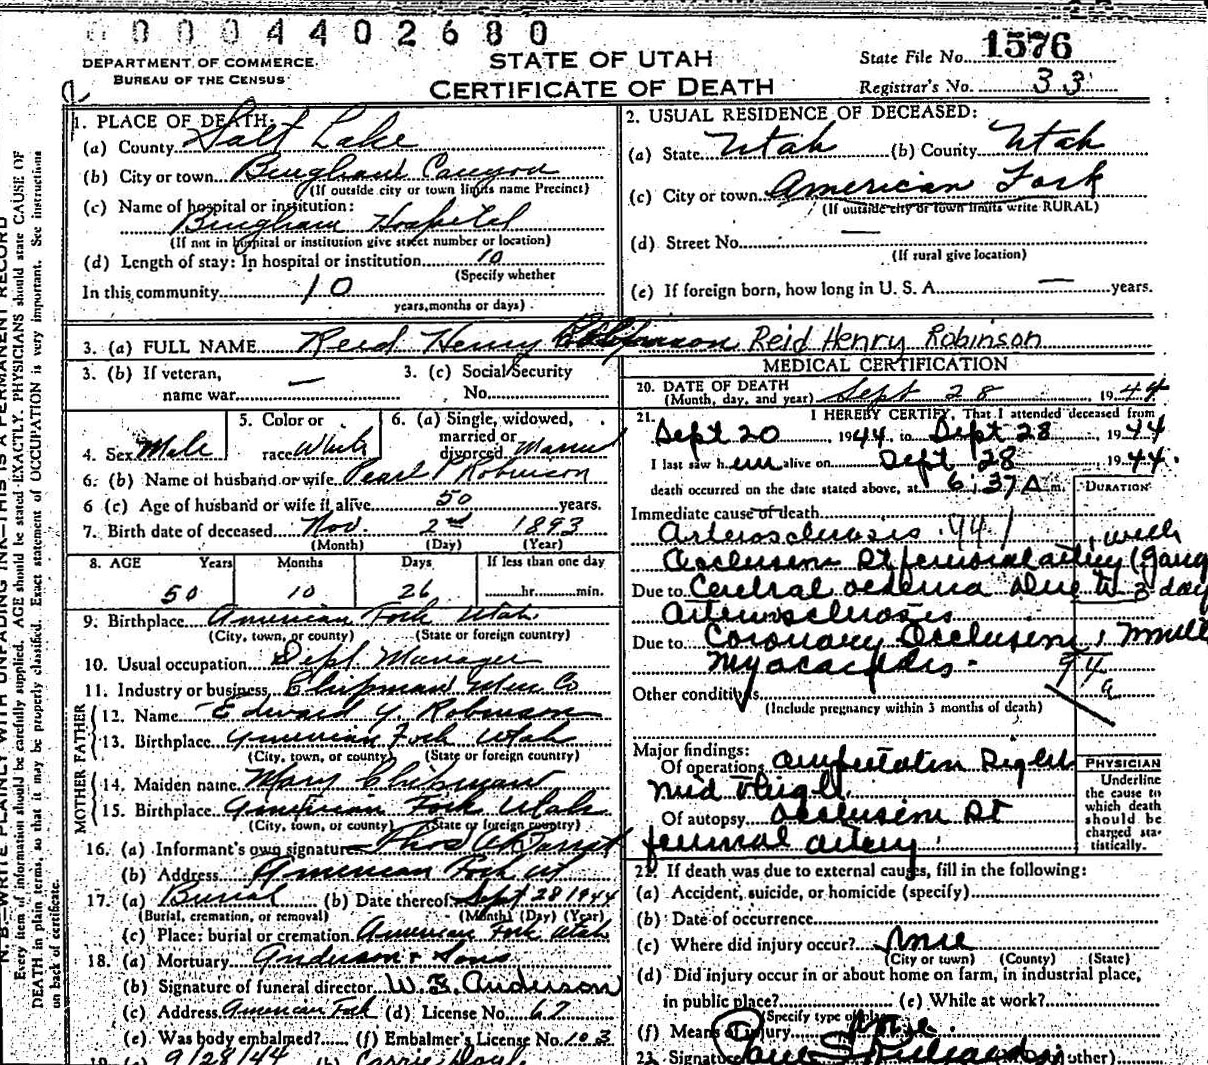 0 0 0 4 4 0 2 6 8 0
DEPARTMENT OF COMMERCE
BUREAU OF THE CENSUS
STATE OF UTAH
CERTIFICATE OF DEATH
State File No. 1576
Registrar's No. 33
1. PLACE OF DEATH:
(a) County Salt Lake
(b) City or town Bingham Canyon
(If outside city or town limits name Precinct)
(c) Name of hospital or institution:
Bingham Hospital
(If not in hospital or institution give street number or location)
(d) Length of stay: In hospital or institution 10
(Specify whether
In this community 10
years, months or days)
2. USUAL RESIDENCE OF DECEASED:
(a) State Utah (b) County Utah
(c) City or town American Fork
(If outside city or town limits write RURAL)
(d) Street No. —
(If rural give location)
(e) If foreign born, how long in U. S. A. — years.
3. (a) FULL NAME Reid Henry Robinson Reid Henry Robinson
3. (b) If veteran,
name war —
3. (c) Social Security
No.
4. Sex Male
5. Color or
race White
6. (a) Single, widowed,
married or
divorced Married
6. (b) Name of husband or wife Pearl P Robinson
6 (c) Age of husband or wife if alive 50 years.
7. Birth date of deceased Nov. 2nd 1893
(Month) (Day) (Year)
8. AGE Years Months Days If less than one day
50 10 26 hr. min.
9. Birthplace American Fork Utah
(City, town, or county) (State or foreign country)
10. Usual occupation Dept Manager
11. Industry or business Chipman Merc Co
FATHER
12. Name Edward Y Robinson
13. Birthplace American Fork Utah
(City, town, or county) (State or foreign country)
MOTHER
14. Maiden name Mary Chipman
15. Birthplace American Fork Utah
(City, town, or county) (State or foreign country)
16. (a) Informant's own signature
(b) Address American Fork Ut
17. (a) Burial (b) Date thereof Sept 28 1944
(Burial, cremation, or removal) (Month) (Day) (Year)
(c) Place: burial or cremation American Fork Utah
18. (a) Mortuary Anderson & Sons
(b) Signature of funeral director W. B. Anderson
(c) Address American Fork (d) License No. 67
(e) Was body embalmed? (f) Embalmer's License No. 103
19. (a) 9/28/44 (b) Carrie
MEDICAL CERTIFICATION
20. DATE OF DEATH
(Month, day, and year) Sept 28 1944
21. I HEREBY CERTIFY, That I attended deceased from
Sept 20 1944, to Sept 28 1944
I last saw him alive on Sept 28 1944.
death occurred on the date stated above, at 6:37 A m.
DURATION
Immediate cause of death
Arteriosclerosis 94 1, with
Occlusion Rt femoral artery (Gang
Due to Cerebral oedema Due to 3 day
Arteriosclerosis
Due to Coronary Occlusion,
Myocarditis. 94 a
Other conditions
(Include pregnancy within 3 months of death)
Major findings:
Of operations Amputation Right
Mid Thigh.
Of autopsy Occlusion Rt
femoral artery.
PHYSICIAN
Underline
the cause to
which death
should be
charged sta-
tistically.
22. If death was due to external causes, fill in the following:
(a) Accident, suicide, or homicide (specify)
(b) Date of occurrence
(c) Where did injury occur? None
(City or town) (County) (State)
(d) Did injury occur in or about home on farm, in industrial place,
in public place? (e) While at work?
(Specify type of place)
(f) Means of injury None.
23. Signature Paul S Richards other)
N. B.—WRITE PLAINLY WITH UNFADING INK—THIS IS A PERMANENT RECORD
Every item of information should be carefully supplied. AGE should be stated EXACTLY. PHYSICIANS should state CAUSE OF
DEATH in plain terms, so that it may be properly classified. Exact statement of OCCUPATION is very important. See instructions
on back of certificate.